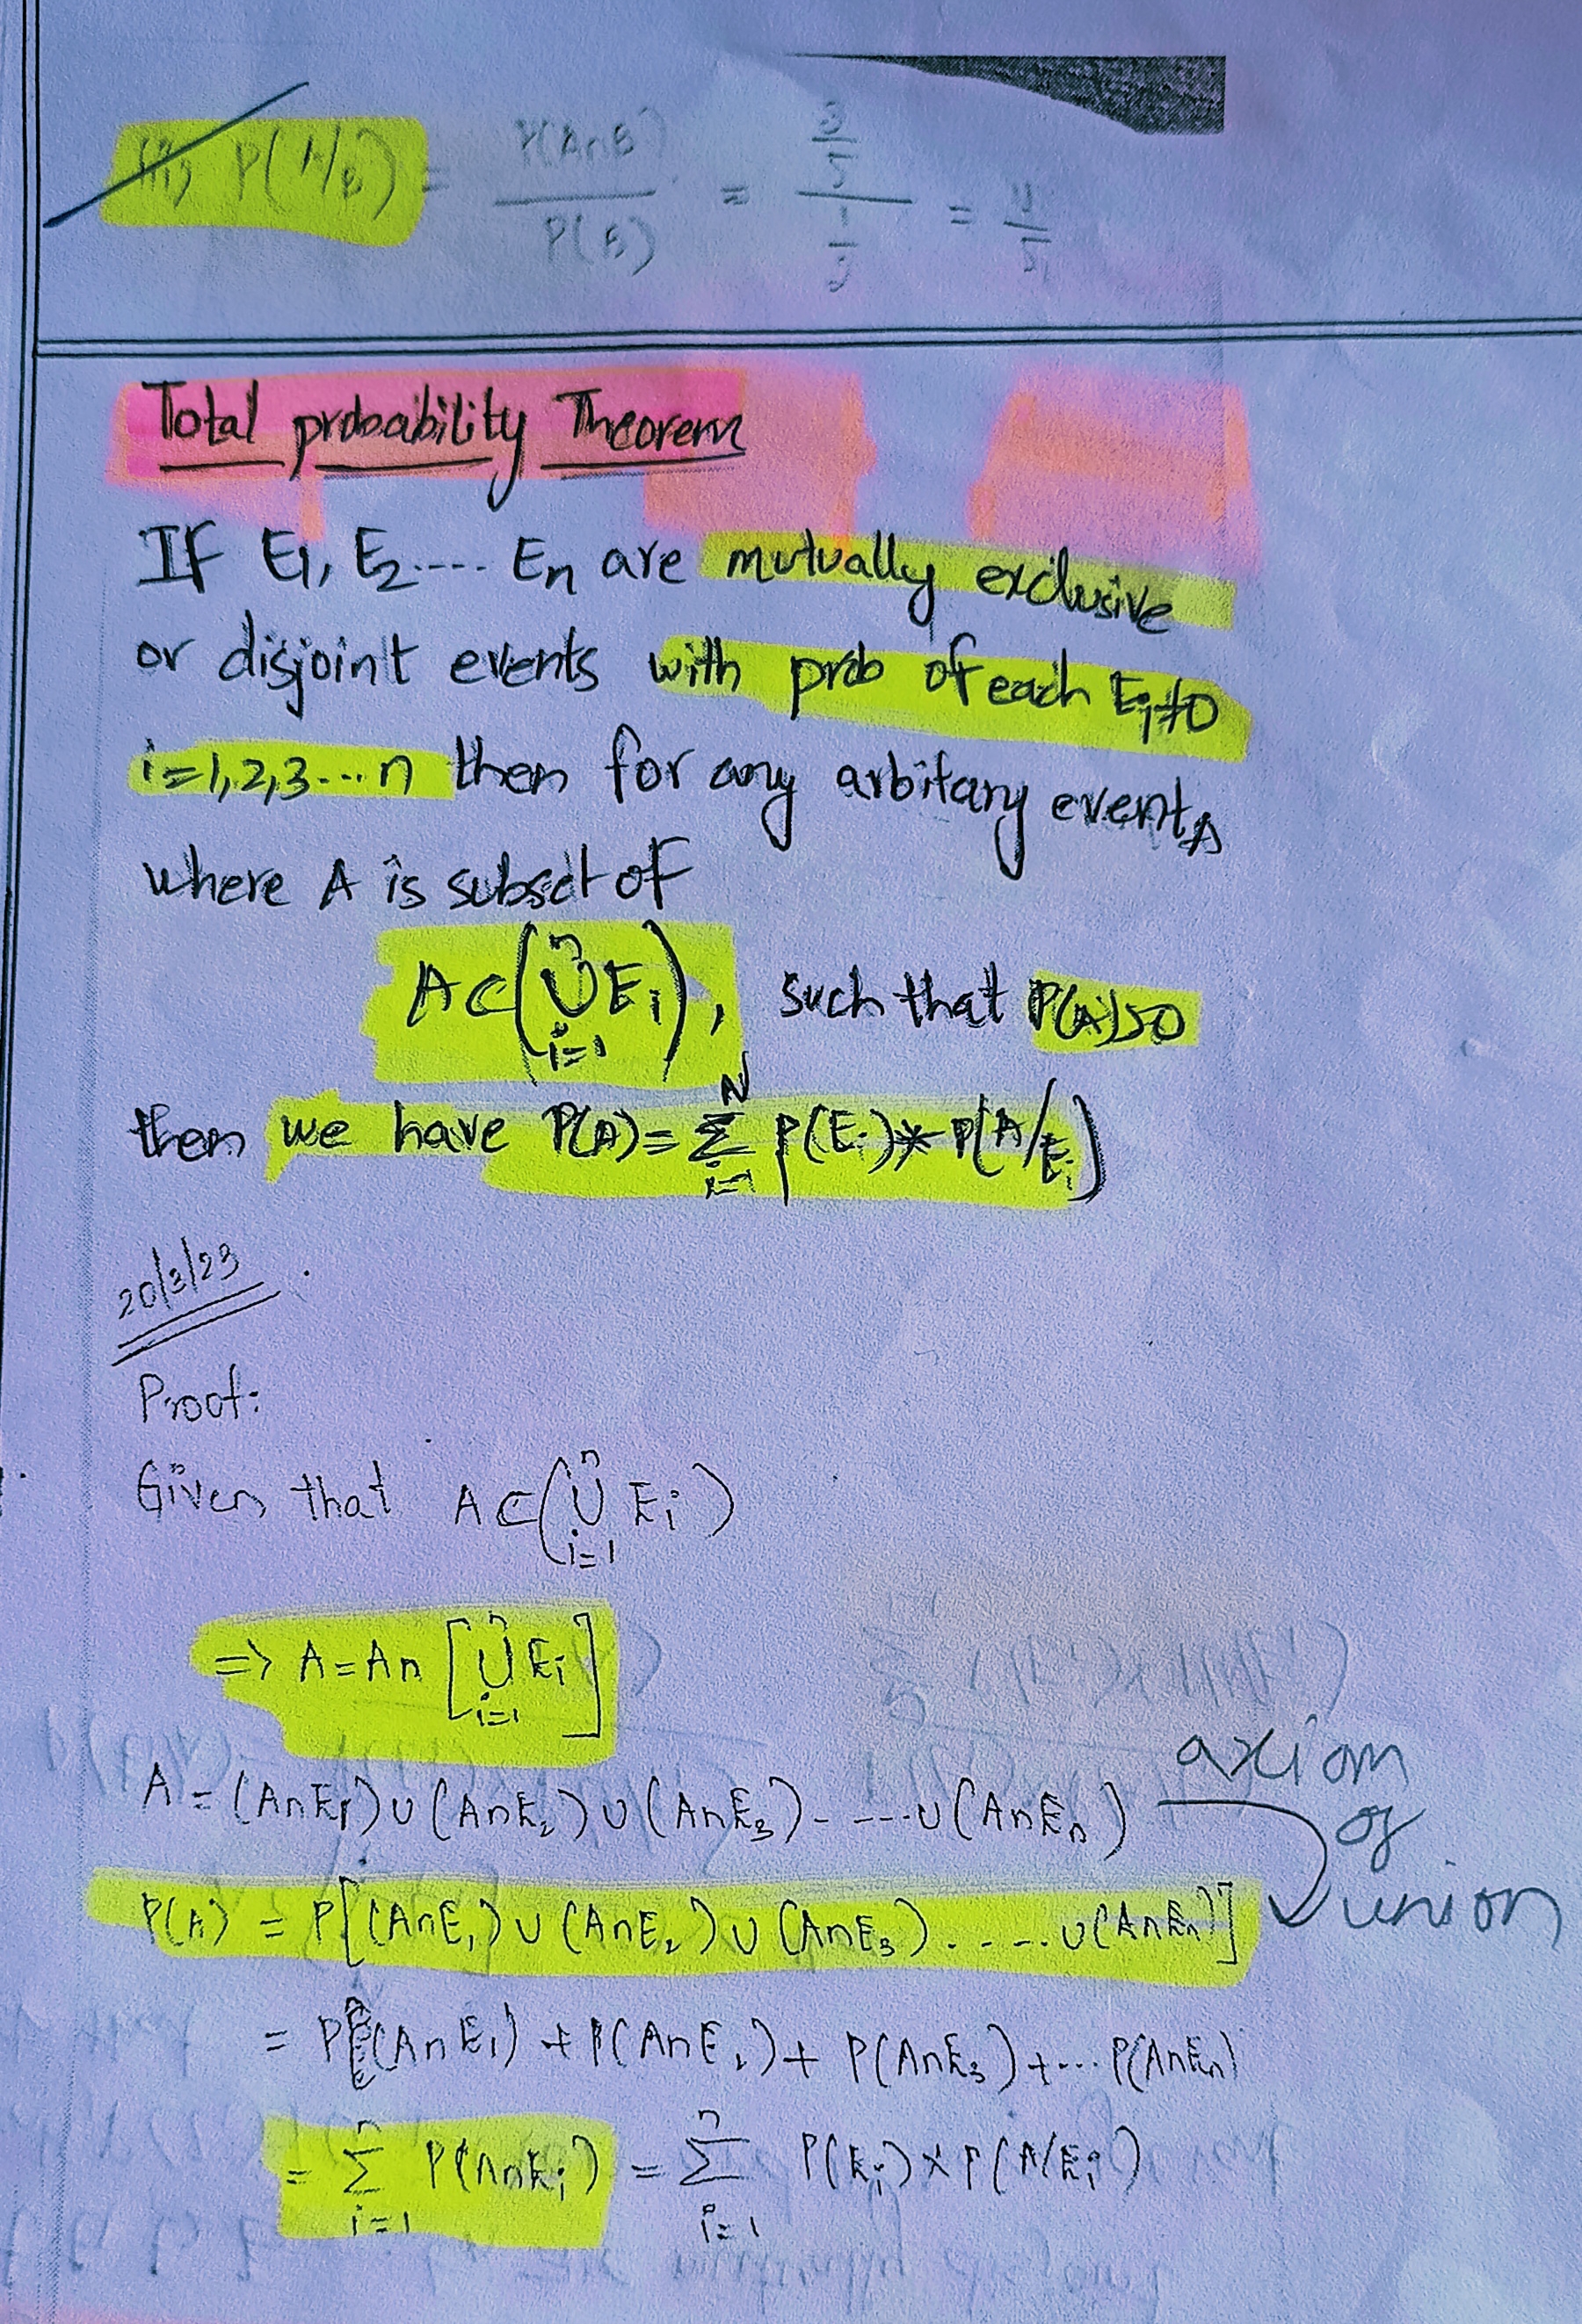 P(A/B) = P(A∩B) / P(B) = =
Total probability Theorem
If E1, E2 .... En are mutually exclusive
or disjoint events with prob of each Ei≠0
i=1,2,3...n then for any arbitary event A
where A is subset of
A⊂(⋃ⁿᵢ₌₁ Eᵢ), such that P(A)>0
then we have P(A)= Σᴺᵢ₌₁ P(Eᵢ)*P(A/Eᵢ)
20/3/23
Proof:
Given that A⊂(⋃ⁿᵢ₌₁ Eᵢ)
=> A=A∩[⋃ⁿᵢ₌₁ Eᵢ]
A = (A∩E₁)∪(A∩E₂)∪(A∩E₃)- ---∪(A∩Eₙ)
axiom
of
union
P(A) = P[(A∩E₁)∪(A∩E₂)∪(A∩E₃). . ...∪(A∩Eₙ)]
= P(A∩E₁) + P(A∩E₂)+ P(A∩E₃)+... P(A∩Eₙ)
= Σⁿᵢ₌₁ P(A∩Eᵢ) = Σⁿᵢ₌₁ P(Eᵢ)×P(A/Eᵢ)